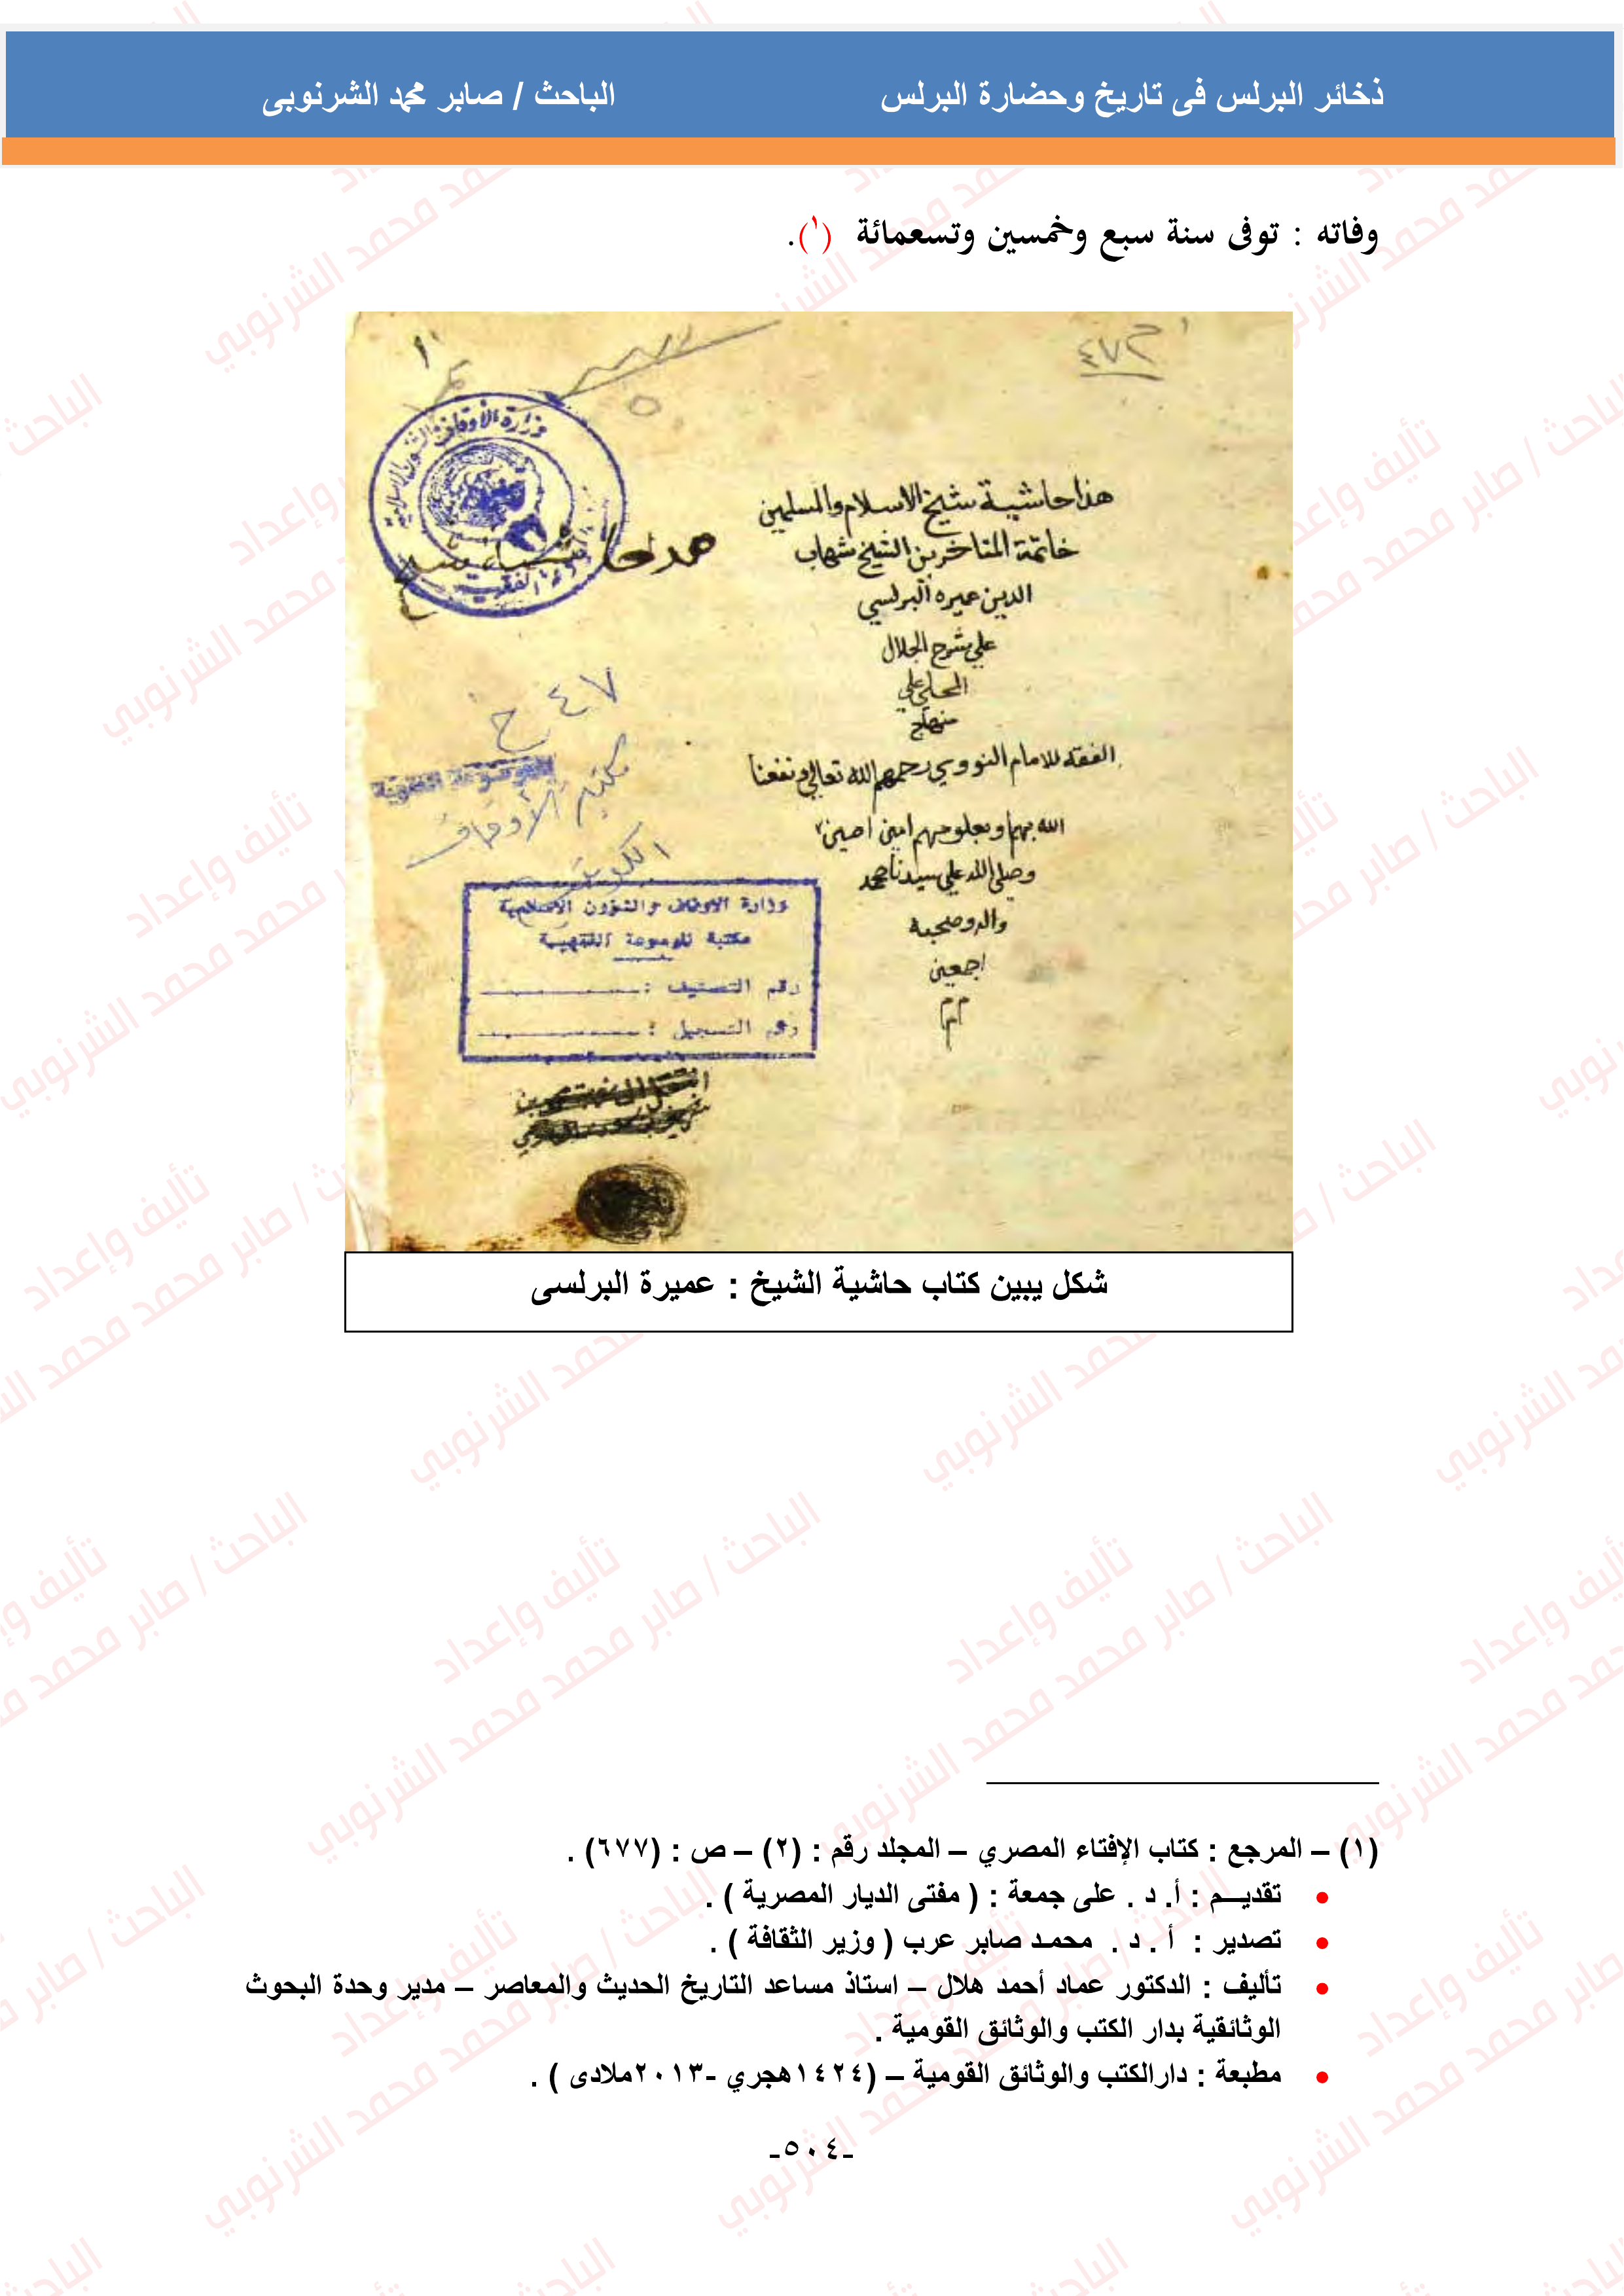 ذخائر البرلس فى تاريخ وحضارة البرلس الباحث / صابر محمد الشرنوبى
وفاته : توفى سنة سبع وخمسين وتسعمائة (١).
٤٧٢
هذا حاشية شيخ الاسلام والمسلمين
خاتمة المتاخرين الشيخ شهاب
الدين عميره البرلسي
علي شرح الجلال
المحلي علي
منهاج
الفقه للامام النووي رحمهم الله تعالي ونفعنا
الله بهم وبعلومهم امين امين
وصلي الله علي سيدنا محمد
واله وصحبه
اجمعين
وزارة الأوقاف والشئون الإسلامية
٤٧ ح
مكتبة الأوقاف
الكويت
وزارة الاوقاف والشؤون الاسلامية
مكتبة الموسوعة الفقهية
رقم التصنيف :
رقم التسجيل :
شكل يبين كتاب حاشية الشيخ : عميرة البرلسى
(١) – المرجع : كتاب الإفتاء المصري – المجلد رقم : (٢) – ص : (٦٧٧) .
• تقديـــم : أ. د . على جمعة : ( مفتى الديار المصرية ) .
• تصدير : أ . د . محمـد صابر عرب ( وزير الثقافة ) .
• تأليف : الدكتور عماد أحمد هلال – استاذ مساعد التاريخ الحديث والمعاصر – مدير وحدة البحوث
الوثائقية بدار الكتب والوثائق القومية .
• مطبعة : دارالكتب والوثائق القومية – (١٤٢٤هجري -٢٠١٣ملادى ) .
-٥٠٤-
تأليف وإعداد
الباحث / صابر محمد محمد الشرنوبي